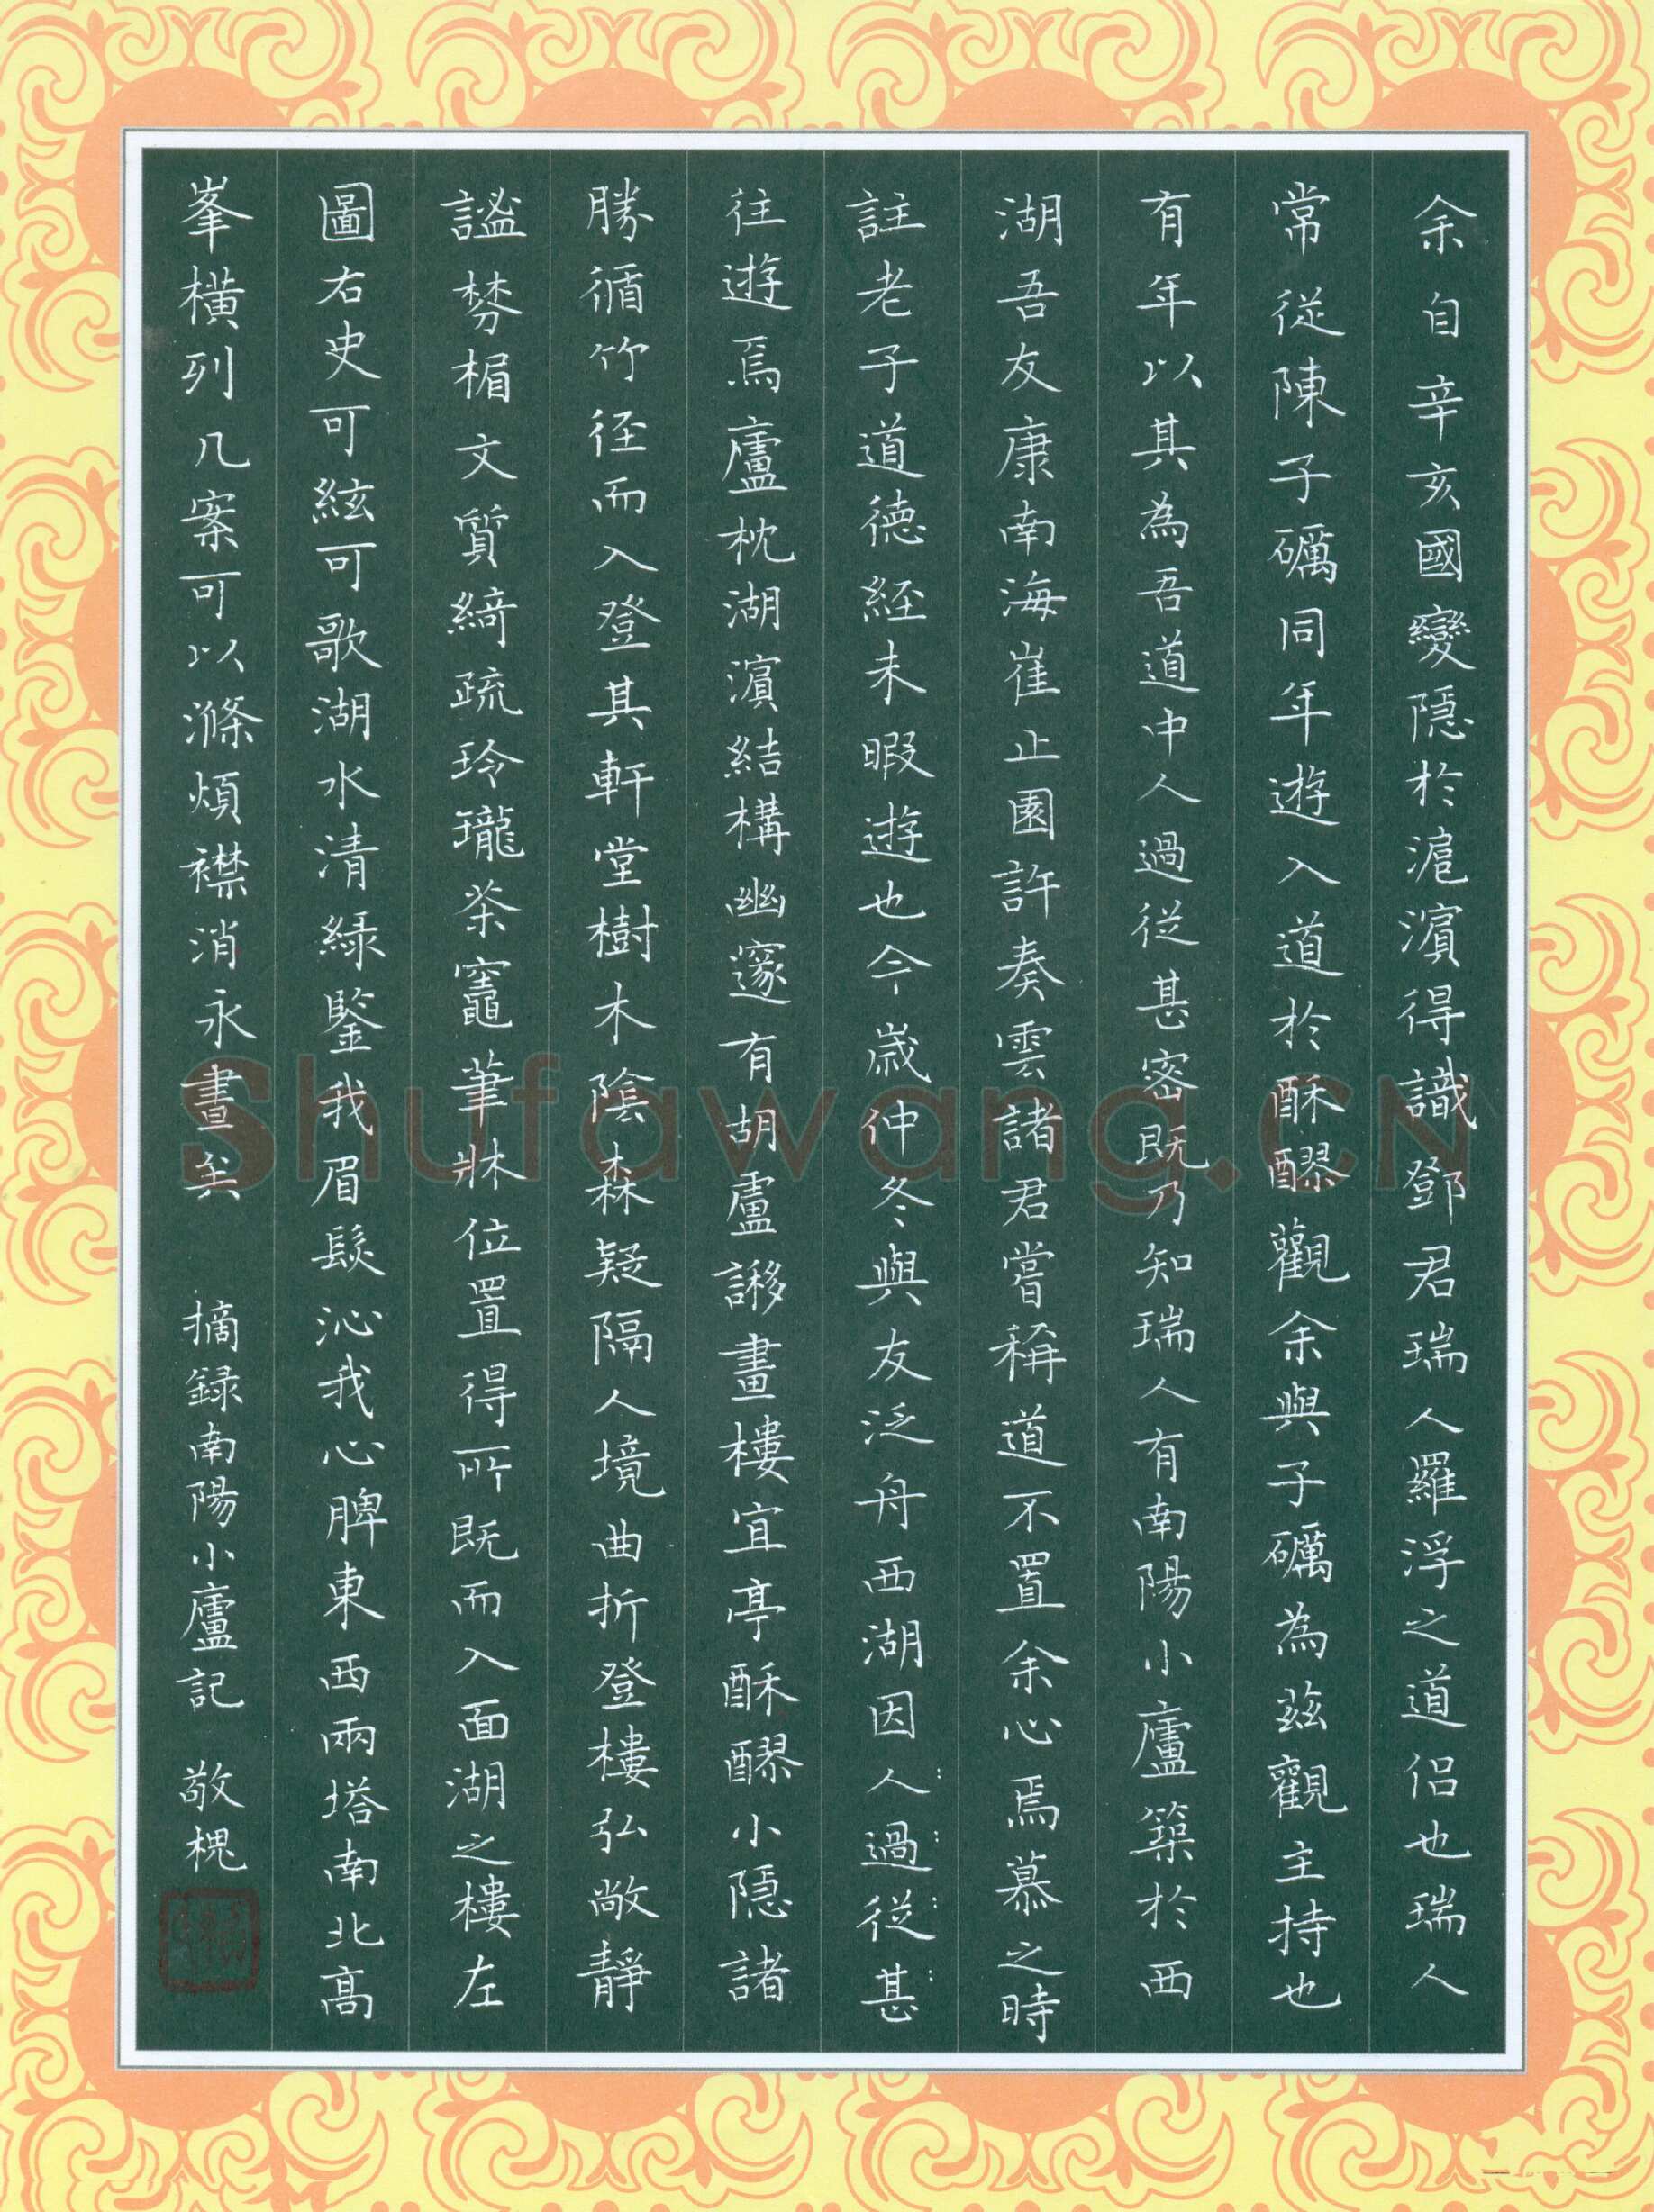 余自辛亥國變隱於滬濱得識鄧君瑞人羅浮之道侶也瑞人
常從陳子礪同年遊入道於酥醪觀余與子礪為茲觀主持也
有年以其為吾道中人過從甚密既乃知瑞人有南陽小廬築於西
湖吾友康南海崔止園許奏雲諸君嘗稱道不置余心焉慕之時
註老子道德經未暇遊也今歲仲冬與友泛舟西湖因人過從甚
往遊焉廬枕湖濱結構幽邃有胡盧謻畫樓宜亭酥醪小隱諸
勝循竹徑而入登其軒堂樹木陰森疑隔人境曲折登樓弘敞靜
謐棼楣文質綺疏玲瓏茶竈筆牀位置得所既而入面湖之樓左
圖右史可絃可歌湖水清綠鑒我眉髮沁我心脾東西兩塔南北高
峯橫列几案可以滌煩襟消永晝矣 摘録南陽小廬記 敬槐
Shufawang.CN